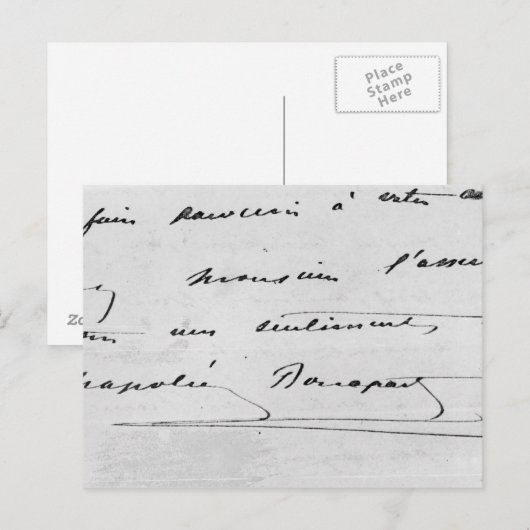 Place
Stamp
Here
Z
fair parvenir à votre
Monsieur l'assu
mes sentiments
napoléo Bonapart